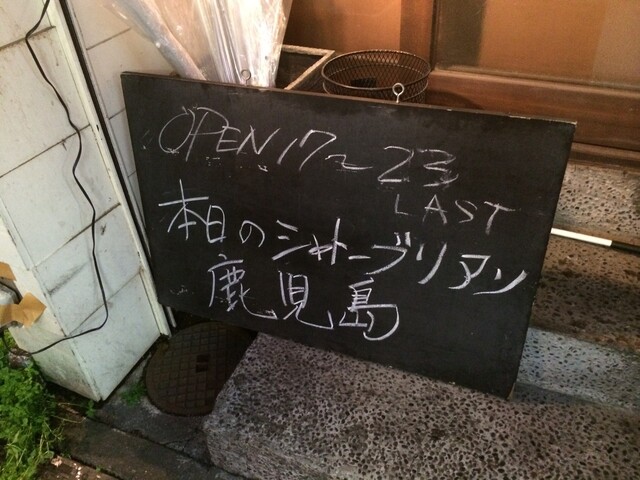 OPEN 17～23
LAST
本日のシャトーブリアン
鹿児島